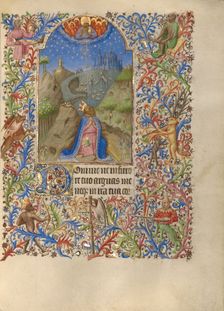 Domine ne in furo
re tuo arguas me
neq; in ira tua cor